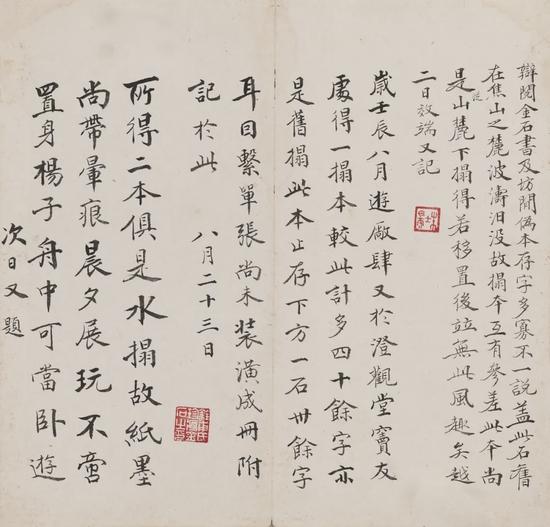 辯閱金石書及坊間偽本存字多寡不一說蓋此石舊
在焦山之麓波濤汨没故搨本互有參差此本尚
是山麓下搨得若移置後竝無此風趣矣越
二日效端又記
歲壬辰八月遊廠肆又於澄觀堂竇友
處得一搨本較此計多四十餘字亦
是舊搨此本止存下方一石卅餘字
耳因繫單張尚未裝潢成冊附
記於此 八月二十三日
所得二本俱是水搨故紙墨
尚帶暈痕晨夕展玩不啻
置身楊子舟中可當卧遊
次日又題